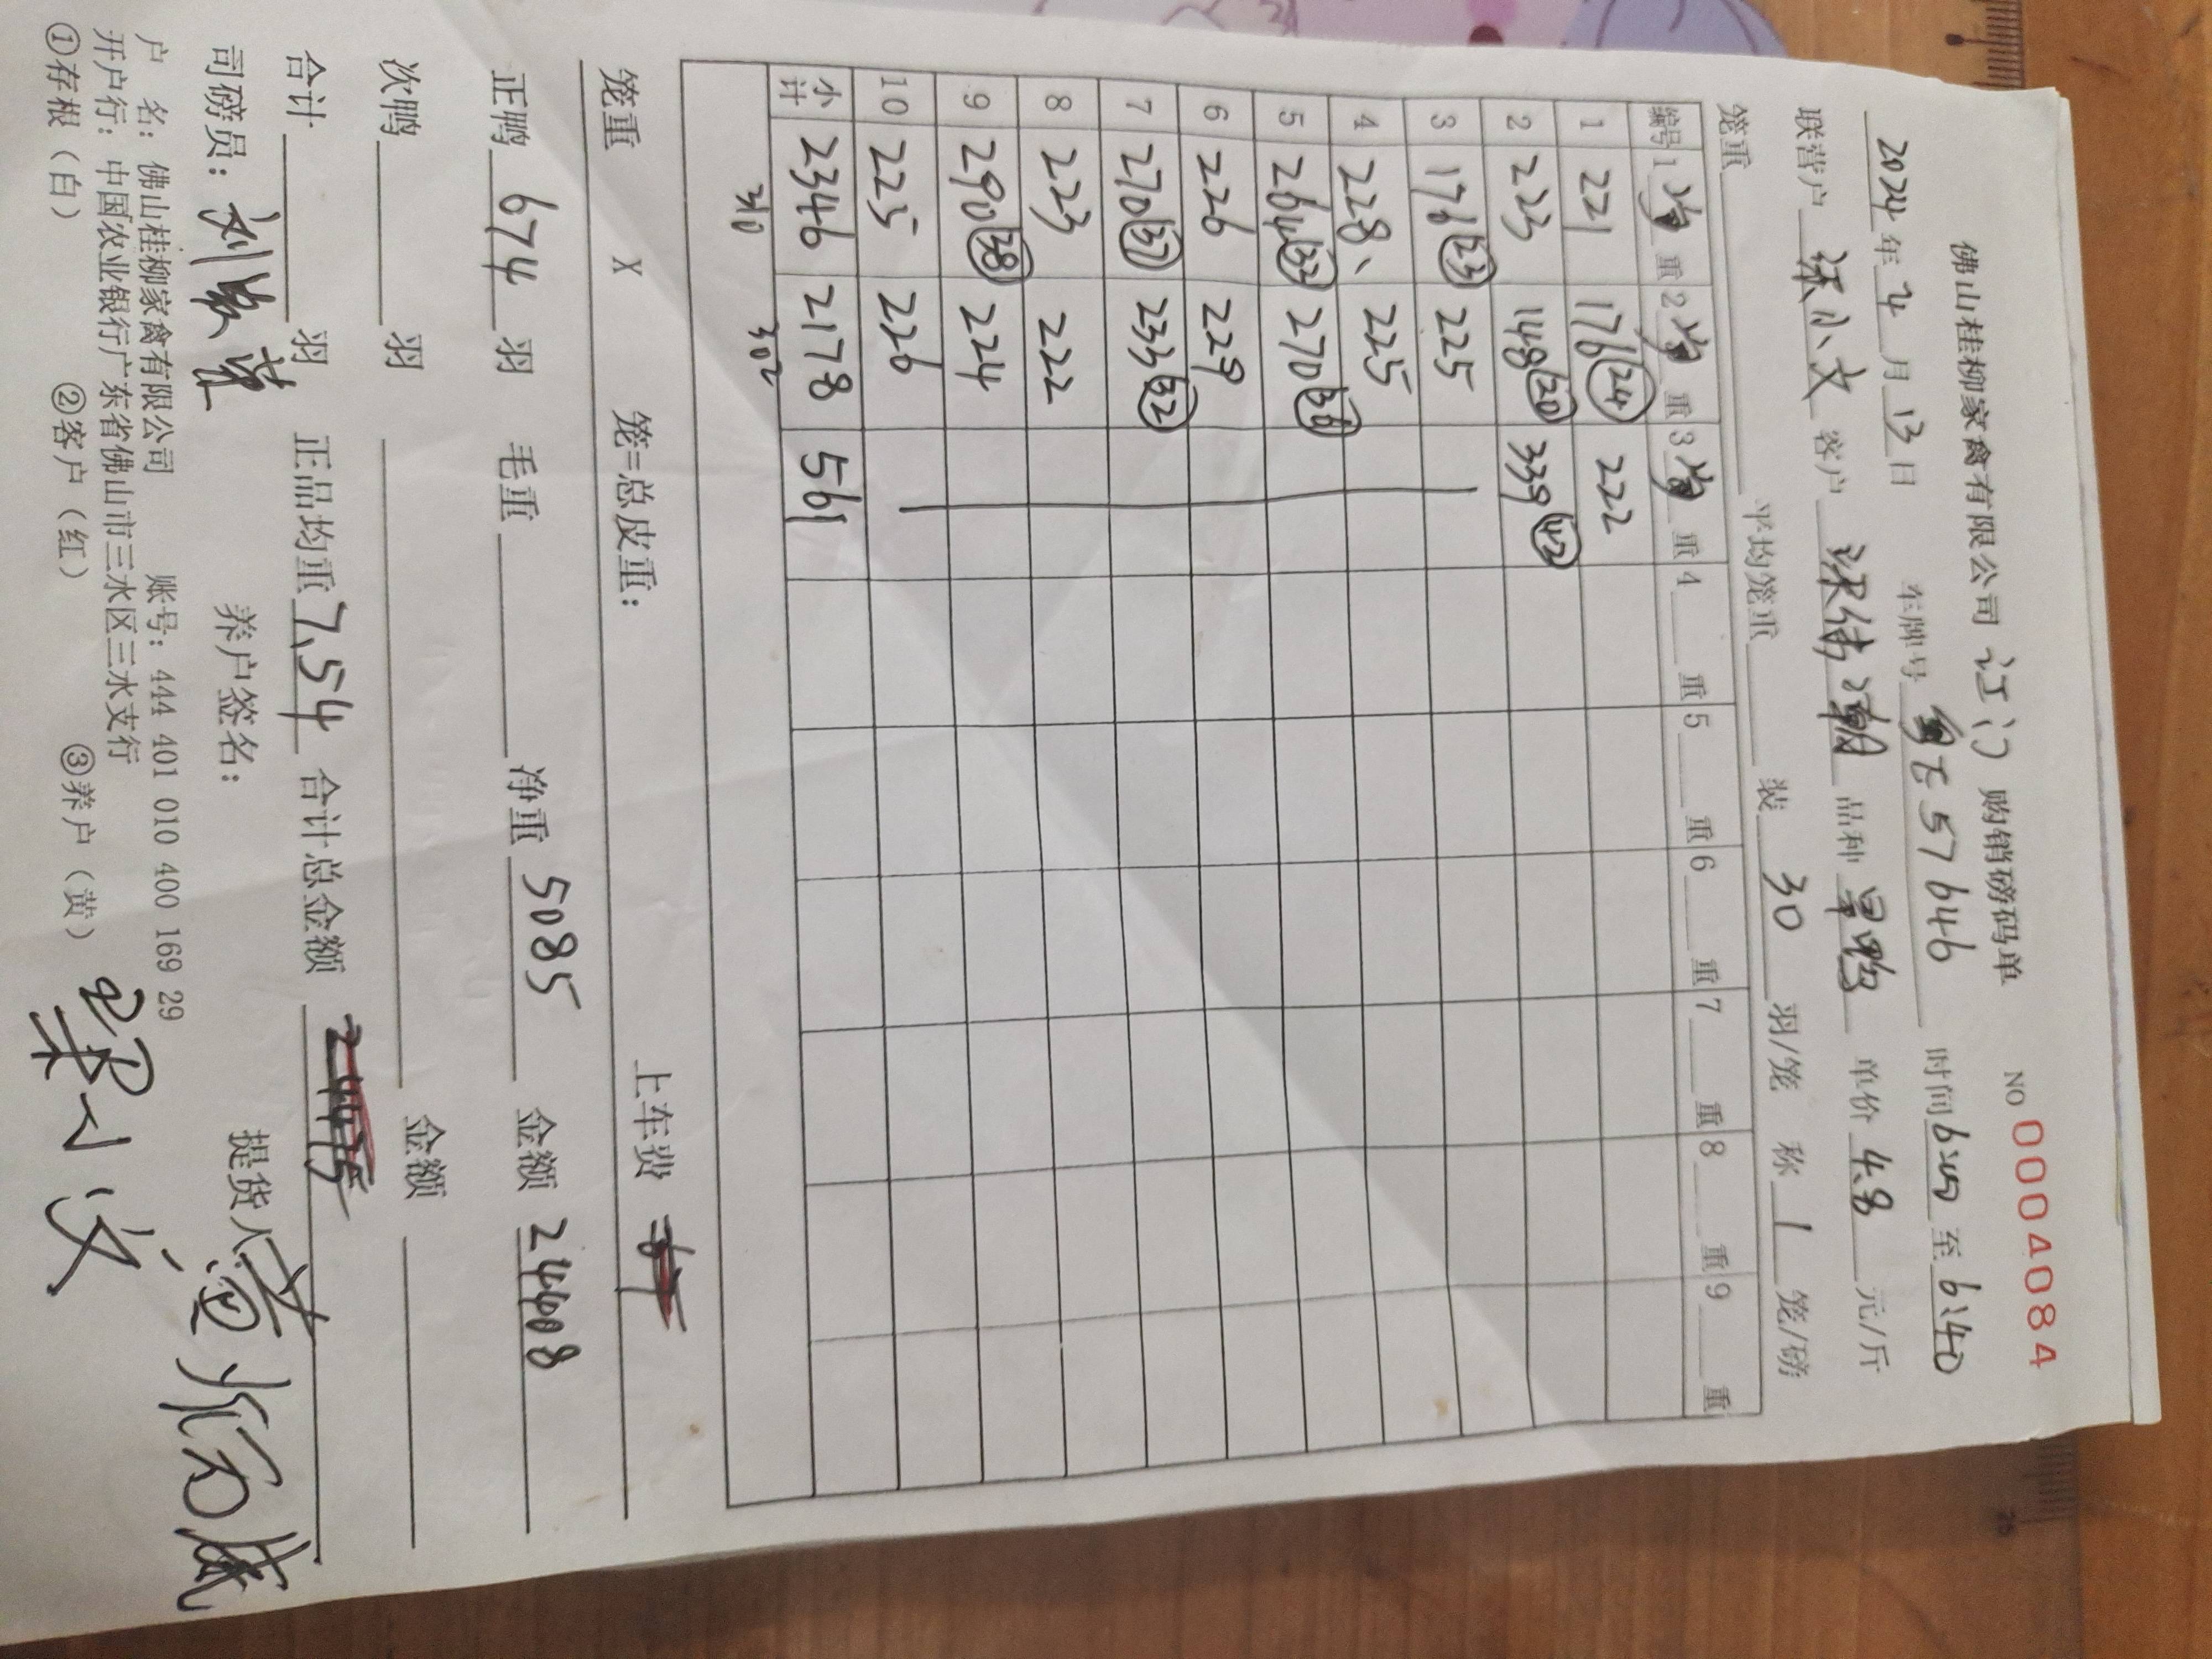 佛山桂柳家禽有限公司 江门 购销磅码单 NO 0004084
2024 年 4 月 13 日 车牌号 57646 时间 至 6:40
联营户 小文 客户 品种 单价 4.8 元/斤
笼重 平均笼重 装 30 羽/笼 称 1 笼/磅
编号 1 重 2 重 3 重 4 重 5 重 6 重 7 重 8 重 9 重
1 221 176 24 222
2 223 148 20 339 42
3 176 23 225
4 228 225
5 264 270 36
6 226 229
7 270 37 233 32
8 223 222
9 290 38 224
10 225 226
小计 2346 2178 561
310 302
笼重 X 笼=总皮重: 上车费
正鸭 674 羽 毛重 净重 5085 金额 24408
次鸭 羽 金额
合计 羽 正品均重 7.54 合计总金额
司磅员: 养户签名: 提货人
户 名: 佛山桂柳家禽有限公司 账号: 444 401 010 400 169 29
开户行: 中国农业银行广东省佛山市三水区三水支行
①存根（白） ②客户（红） ③养户（黄）